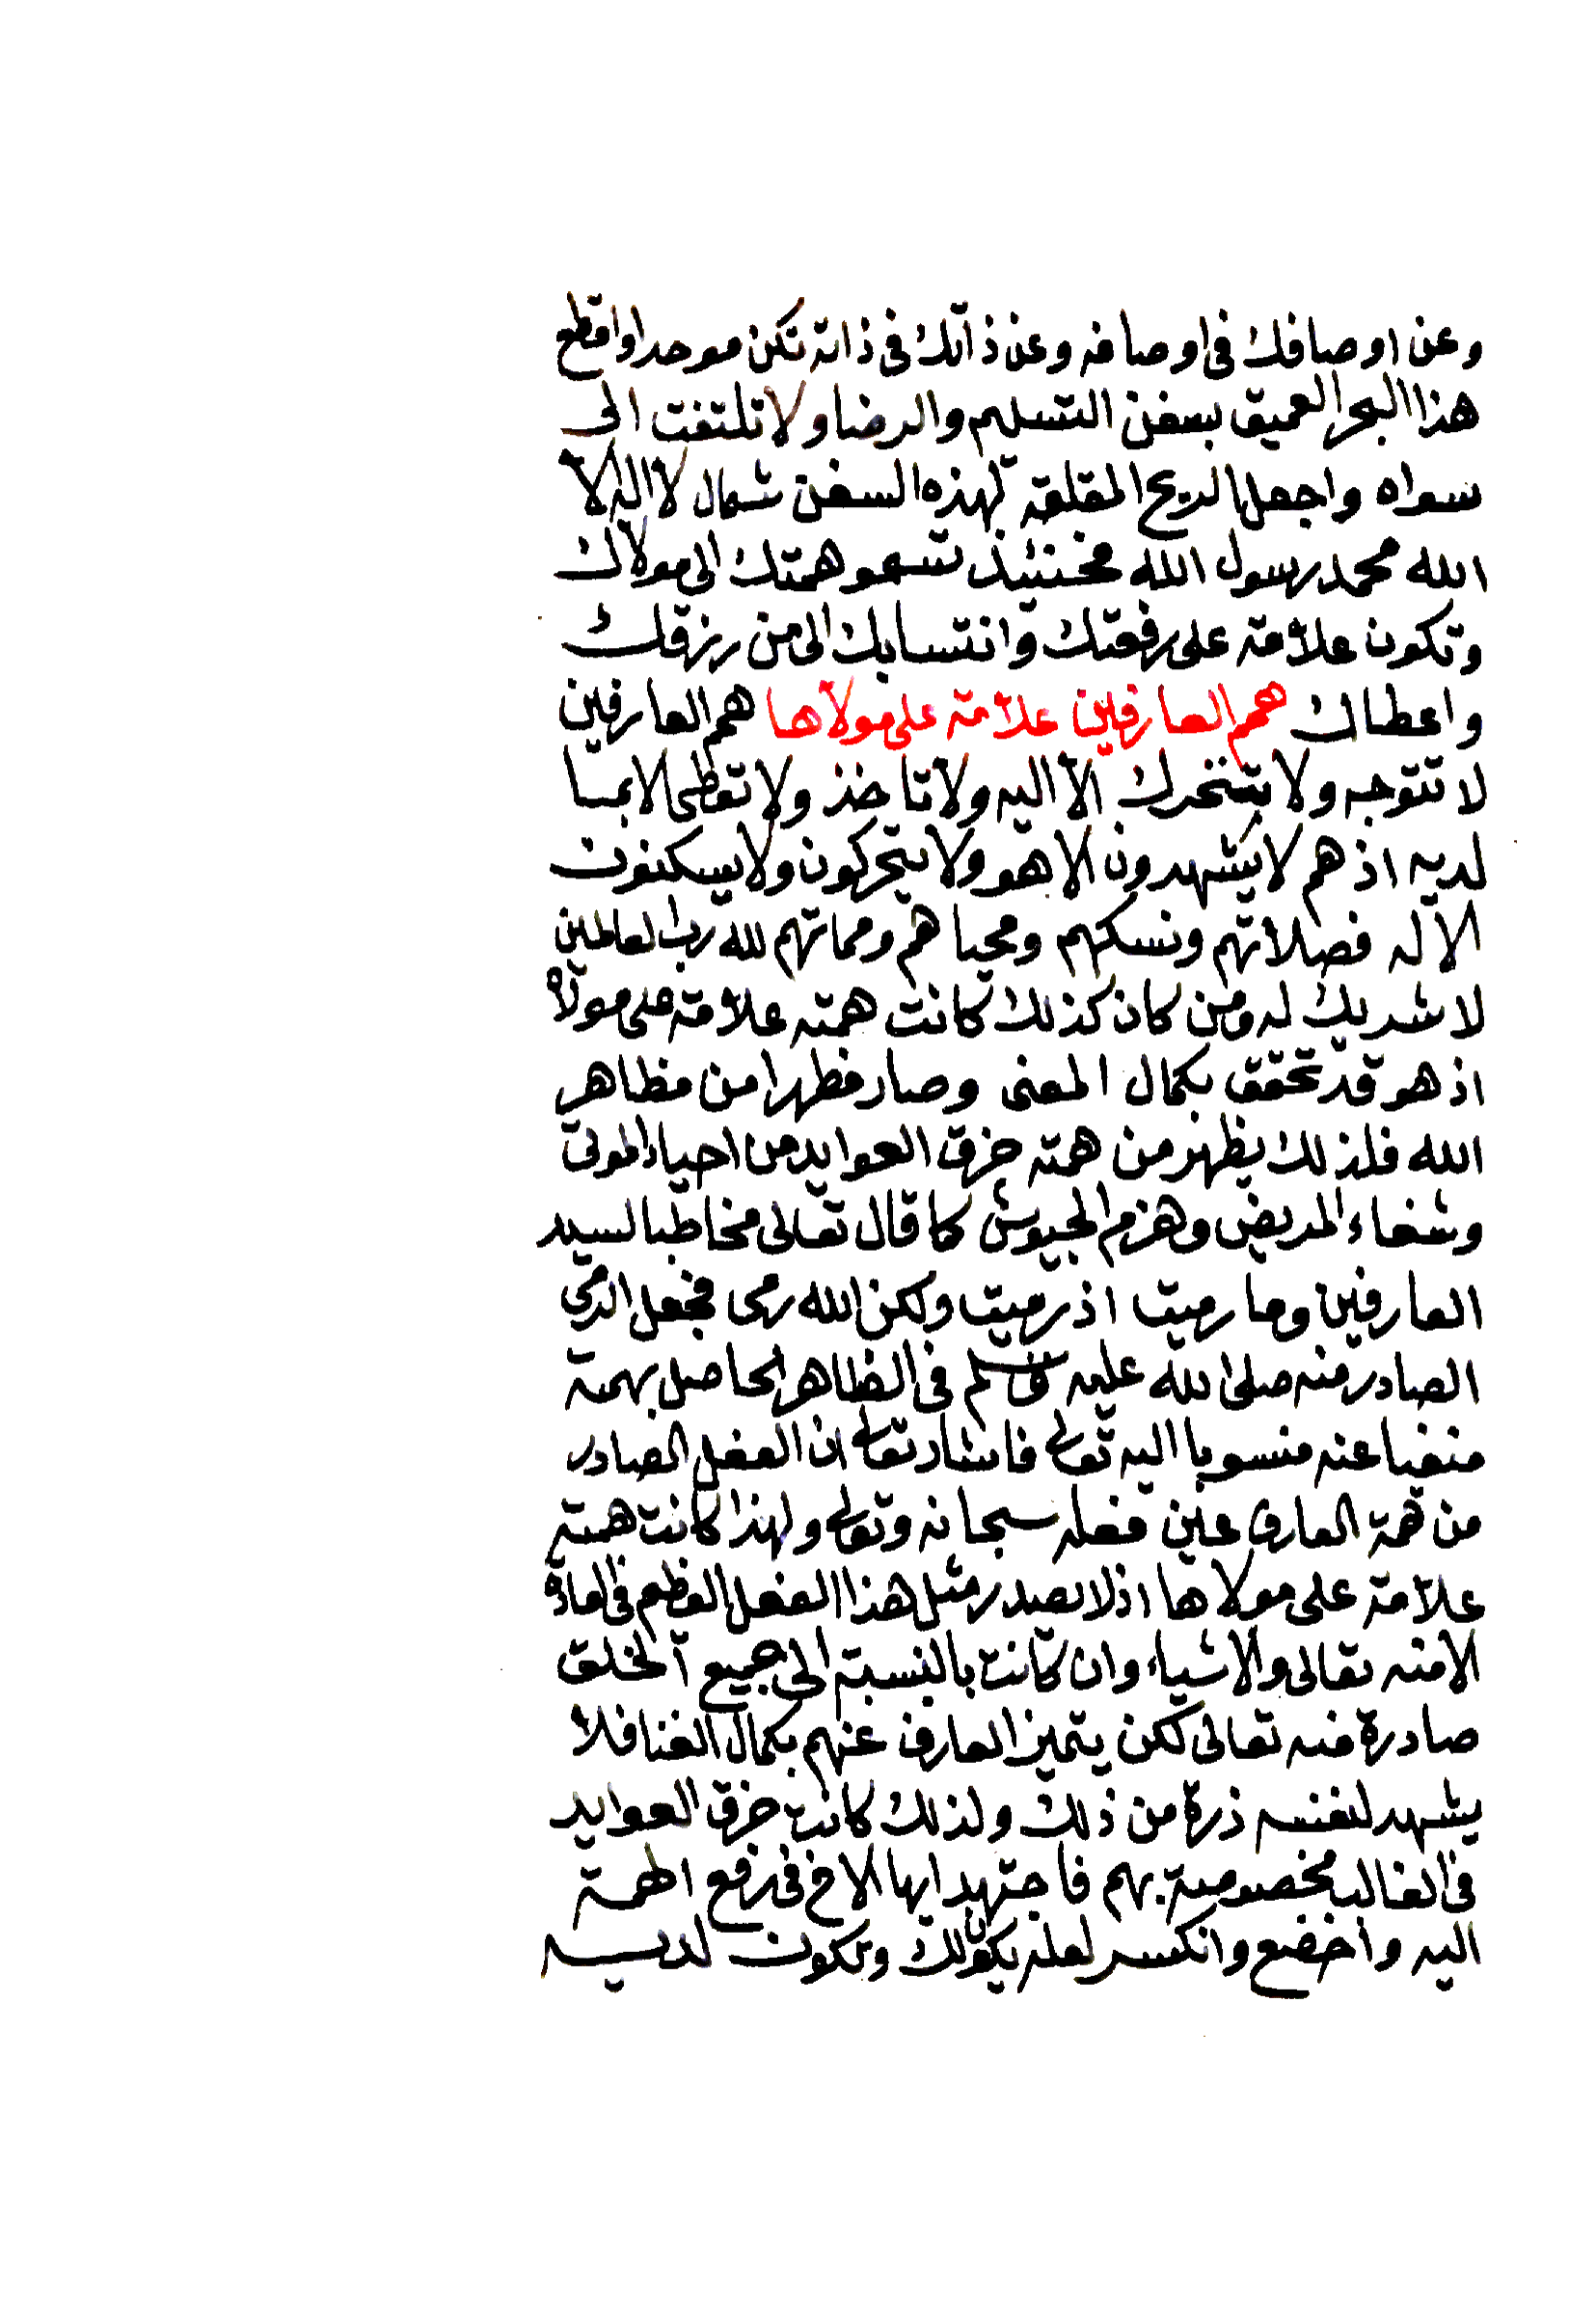 وعن اوصافك فى اوصافه وعن ذاتك فى ذاته تكن موحدا واقطع
هذا البحر العميق بسفن التسليم والرضا ولا تلتفت الى
سواه واجعل الريح المقلقة لهذه السفن شمال لا اله الا
الله محمد رسول الله فحنيئذ تسمو همتك الى مولاك
وتكون علامة على رفعتك وانتسابك الى من رزقك
واعطاك همم العارفين علامة على مولاها همم العارفين
لا تتوجه ولا تتحرك الا اليه ولا تاخذ ولا تعطى الا بما
لديه اذ هم لا يشهدون الا هو ولا يتحركون ولا يسكنون
الا له فصلاتهم ونسكهم ومحياهم ومماتهم لله رب العالمين
لا شريك له ومن كان كذلك كانت همته علامة على مولاه
اذ هو قد تحقق بكمال المعنى وصار مظهرا من مظاهر
الله فلذلك يظهر من همته خرق العوايد من احياء الموتى
وشفاء المريض وهزم الجيوش كما قال تعالى مخاطبا لسيد
العارفين وما رميت اذ رميت ولكن الله رمى فجعل الرمي
الصادر منه صلى الله عليه وسلم فى الظاهر الحاصل بهمته
منفيا عنه منسوبا اليه تعالى فاشار تعالى ان الفعل الصادر
من همة العارف عين فعله سبحانه وتعالى ولهذا كانت همته
علامة على مولاها اذ لا يصدر مثل هذا الفعل العظيم فى العادة
الا منه تعالى والاشياء وان كانت بالنسبة الى جميع الخلق
صادرة منه تعالى لكن يتميز العارف عنهم بكمال الفنا فلا
يشهد لنفسه ذرة من ذلك ولذلك كانت خرق العوايد
فى الغالب مخصوصة بهم فاجتهد ايها الاخ فى رفع الهمة
اليه واخضع وانكسر لعله يكون لك وتكون لديه